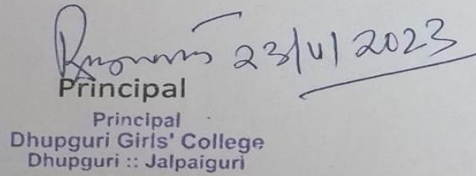 23/11/2023
Principal
Principal
Dhupguri Girls' College
Dhupguri :: Jalpaiguri